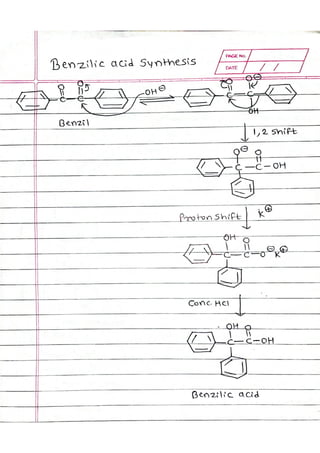 PAGE NO.
DATE / /
Benzilic acid Synthesis
O O ⊖OH O O⊖
C–C C–C
OH
Benzil
1,2 shift
O⊖ O
C–C–OH
Proton shift K⊕
OH O
C–C–O⊖K⊕
Conc. HCl
OH O
C–C–OH
Benzilic acid